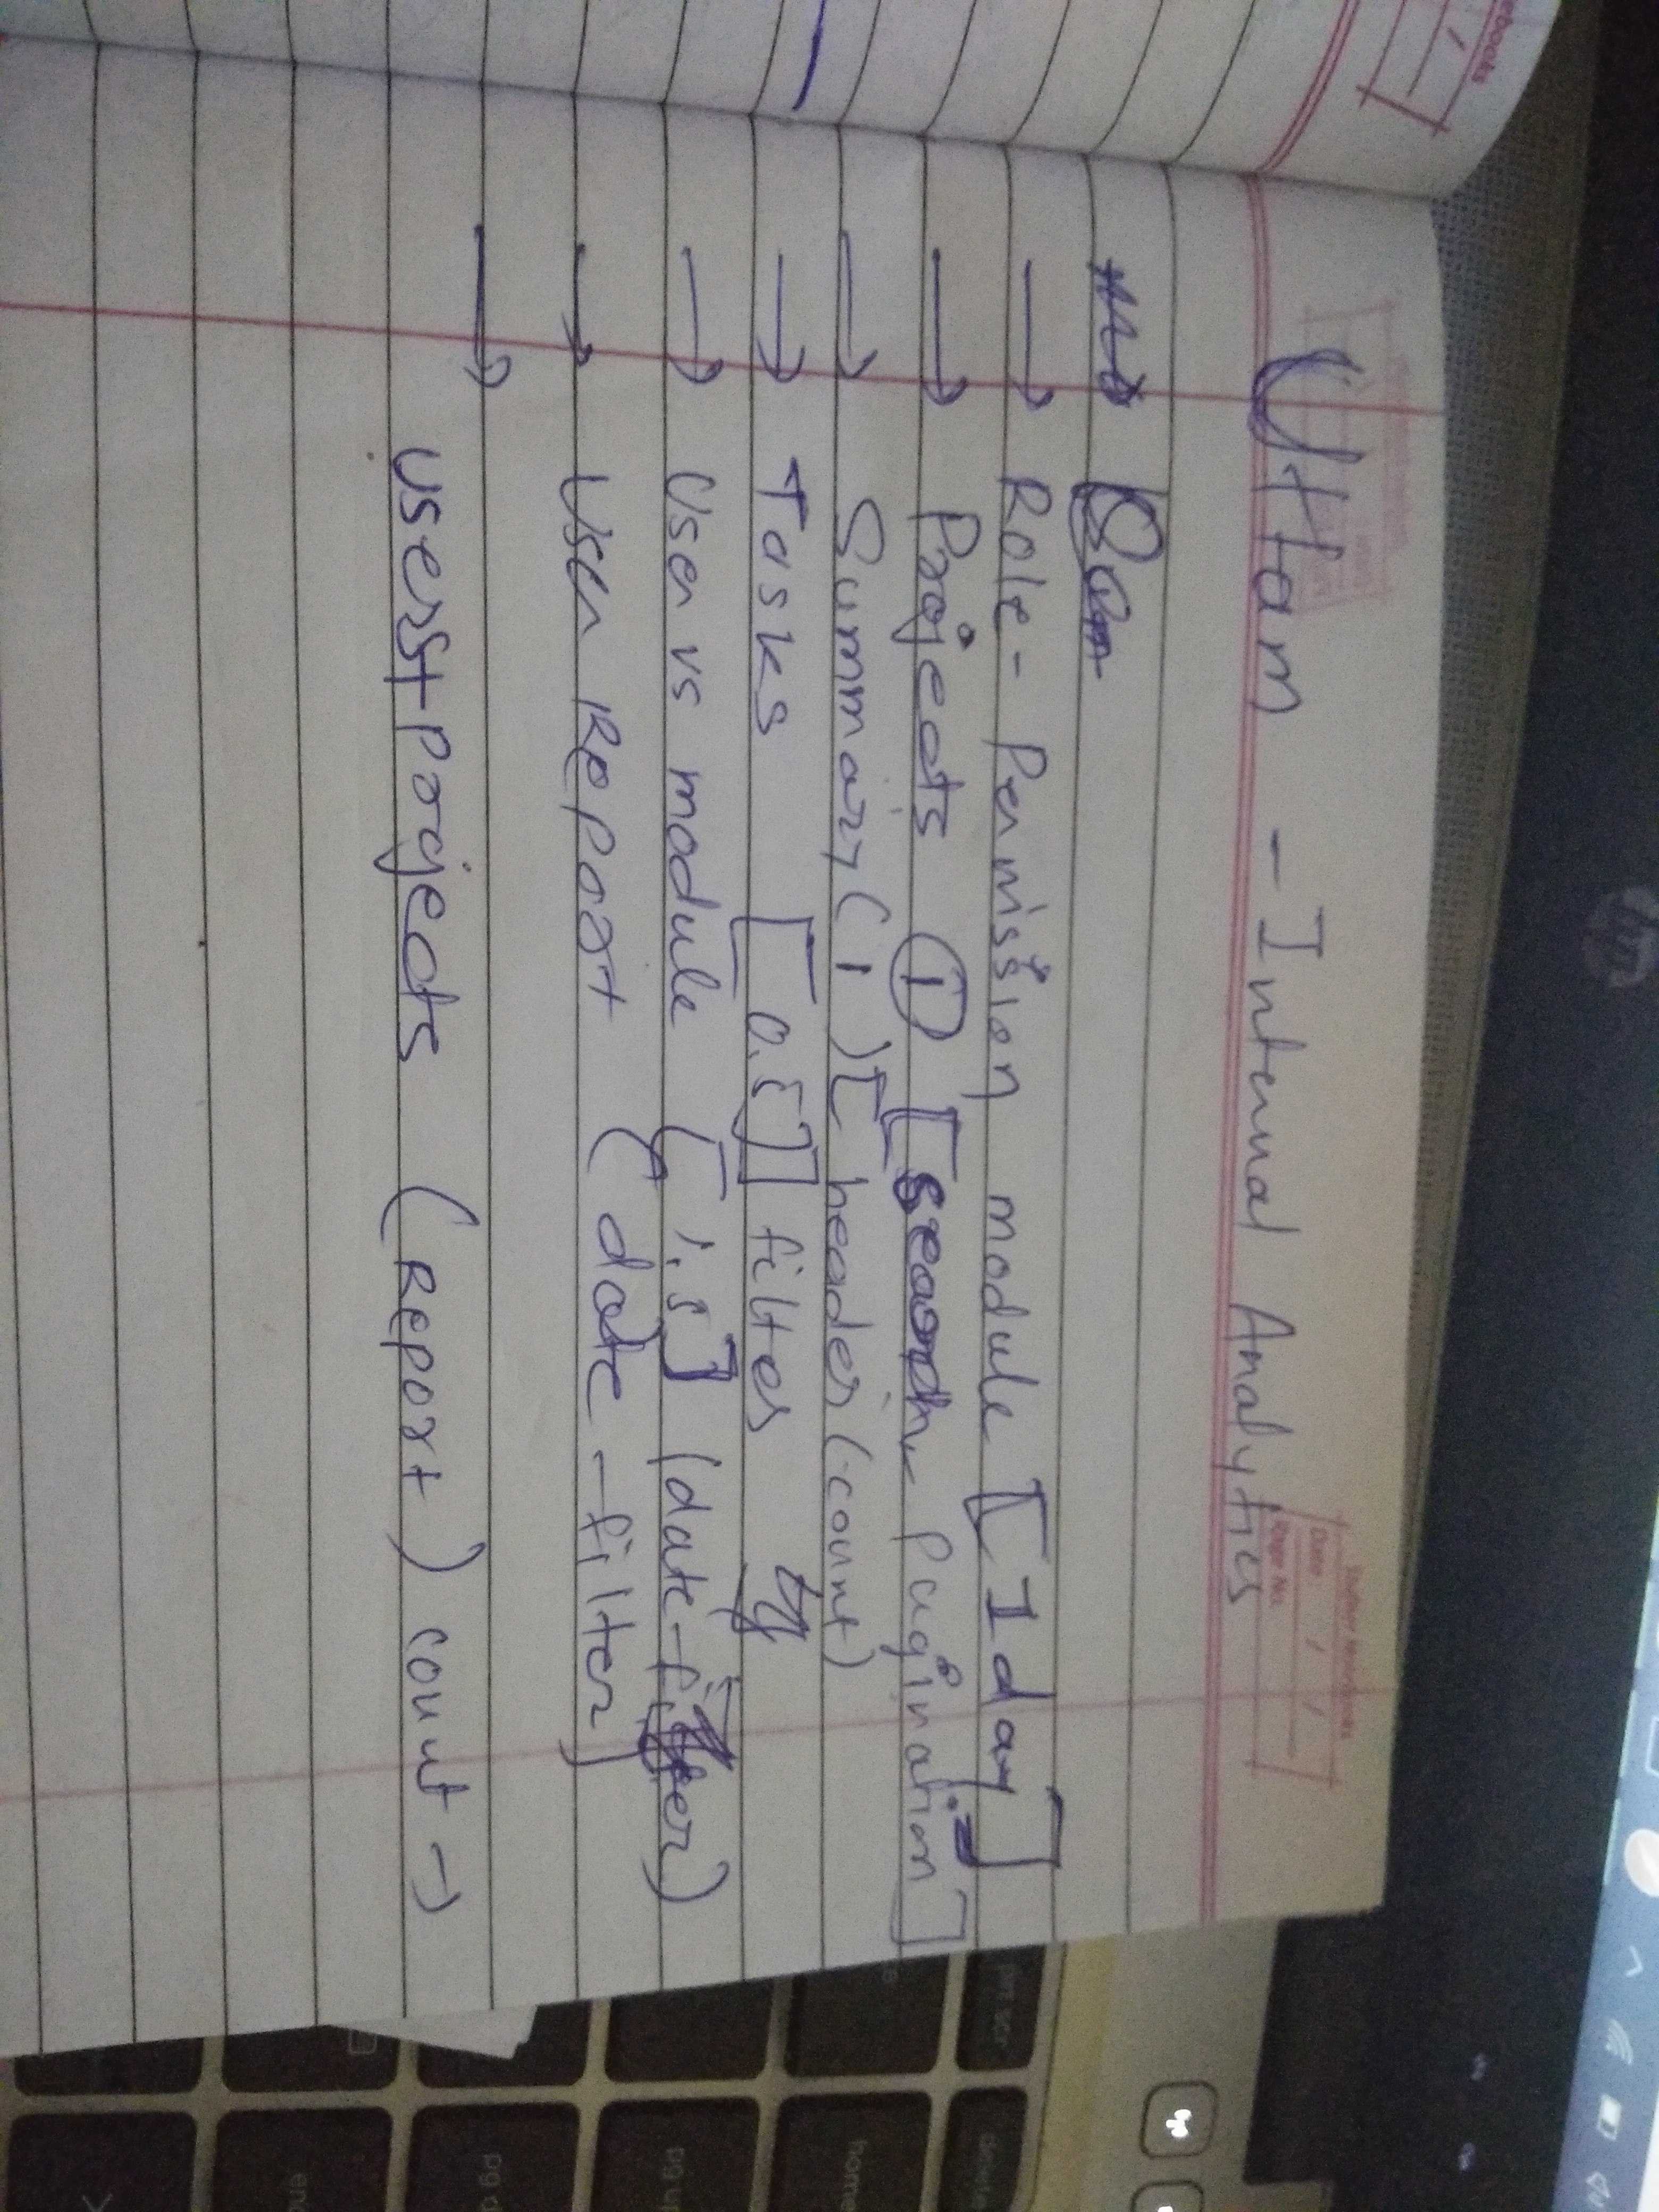 ebooks
Uttam - Internal Analytics
Date: / /
Page No.
→ Role - Permission module [1 day]
→ Projects ① [search pagination]
→ Summary (1) [header (count)
→ Tasks [0.5]] filter
→ User vs module [1.5] (date-filter)
→ User Report (date - filter]
→
users+projects (Report) count →
prt scr
delete
home
pg up
pg d
end
hp